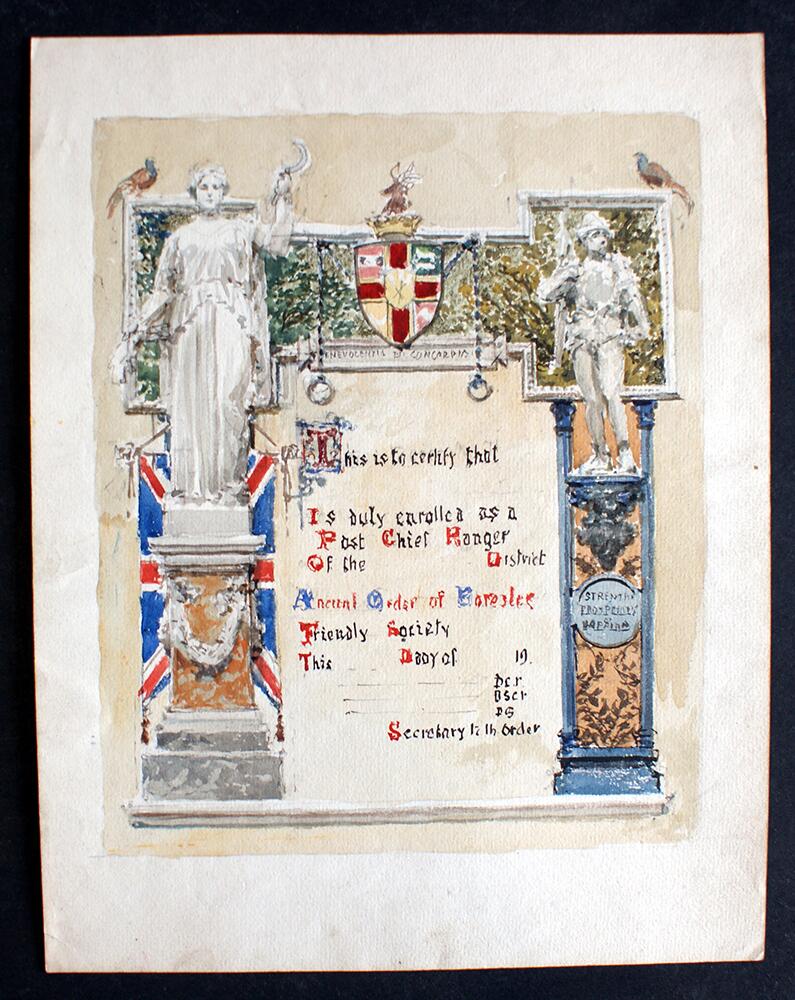 BENEVOLENTIA ET CONCORDIA
This is to certify that
Is duly enrolled as a
Past Chief Ranger
Of the District
Ancient Order of Foresters
Friendly Society
This Day of 19.
DCR
DSCR
DS
Secretary to th Order
STRENTH
PROSPERITY